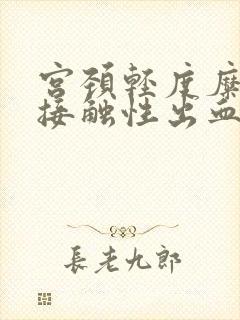 宫颈轻度糜
接触性出血
長老九郎